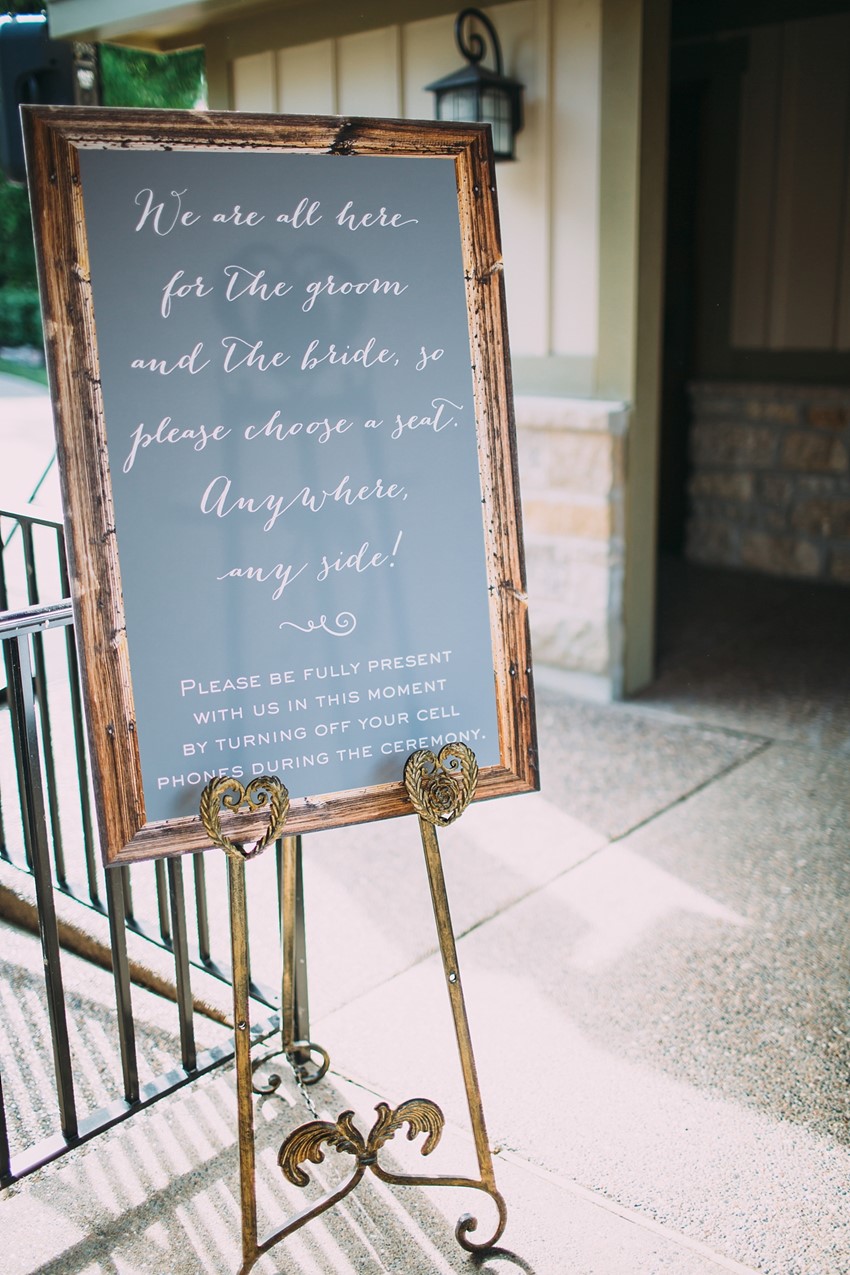 We are all here
for the groom
and the bride, so
please choose a seat.
Anywhere,
any side!
PLEASE BE FULLY PRESENT
WITH US IN THIS MOMENT
BY TURNING OFF YOUR CELL
PHONES DURING THE CEREMONY.